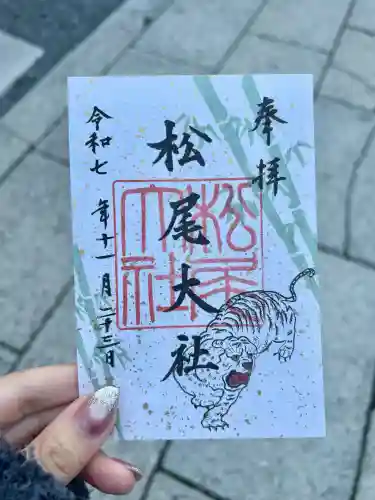 奉拝
松尾大社
松尾大社
令和七年十一月二十三日